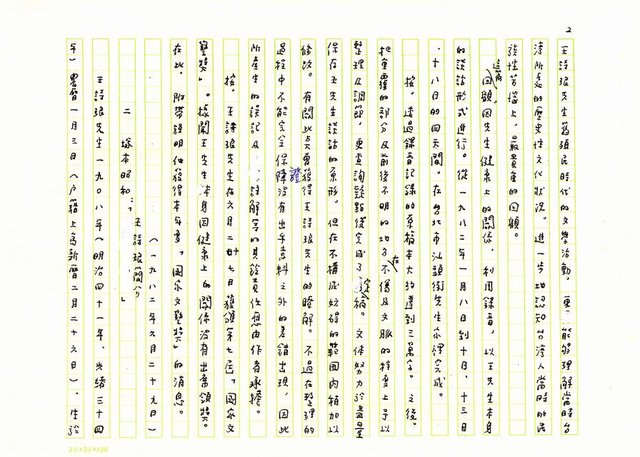 2
王詩琅先生為殖民時代的文學活動。更能夠理解當時台
湾所處的歷史性文化狀況,進一步地認知台湾人當時的民
族性苦境上,最貴重的回顧。
這篇回顧因先生健康上的關係,利用錄音,以王先生本身
的談話形式進行。從一九八二年一月八日到十日、十三日
、十八日的四天間。在台北市汕頭街先生家裡完成。
按。透過錄音記錄的原稿本大約達到三萬字。之後。
把重覆的部分及前後不明的句子在不傷及文脈的程度上予以
整理及調節,更查詢疑點後完成了定稿。文体努力於盡量
保存王先生談話的原形,但在不構成妨碍的範圍內稍加以
修改。有關此点曾獲得王詩琅先生的瞭解。不過在整理的
過程中不能完全保證沒有出乎意料之外的差錯出現,因此
所產生的誤記及、註解等的具餘責任應由作者承擔。
按、王詩琅先生在六月二十七日獲頒第七屆「國家文
藝獎」。據聞王先生本身因健康上的關係沒有出席領獎。
在此,附帶說明他獲得本年度「國家文藝獎」的消息。
(一九八二年六月二十九日)
二 塚本昭和:「王詩琅簡介」
王詩琅先生一九〇八年(明治四十一年、光緒三十四
年)農曆一月三日(戶籍上為新曆二月二十六日),生於
20×25=500